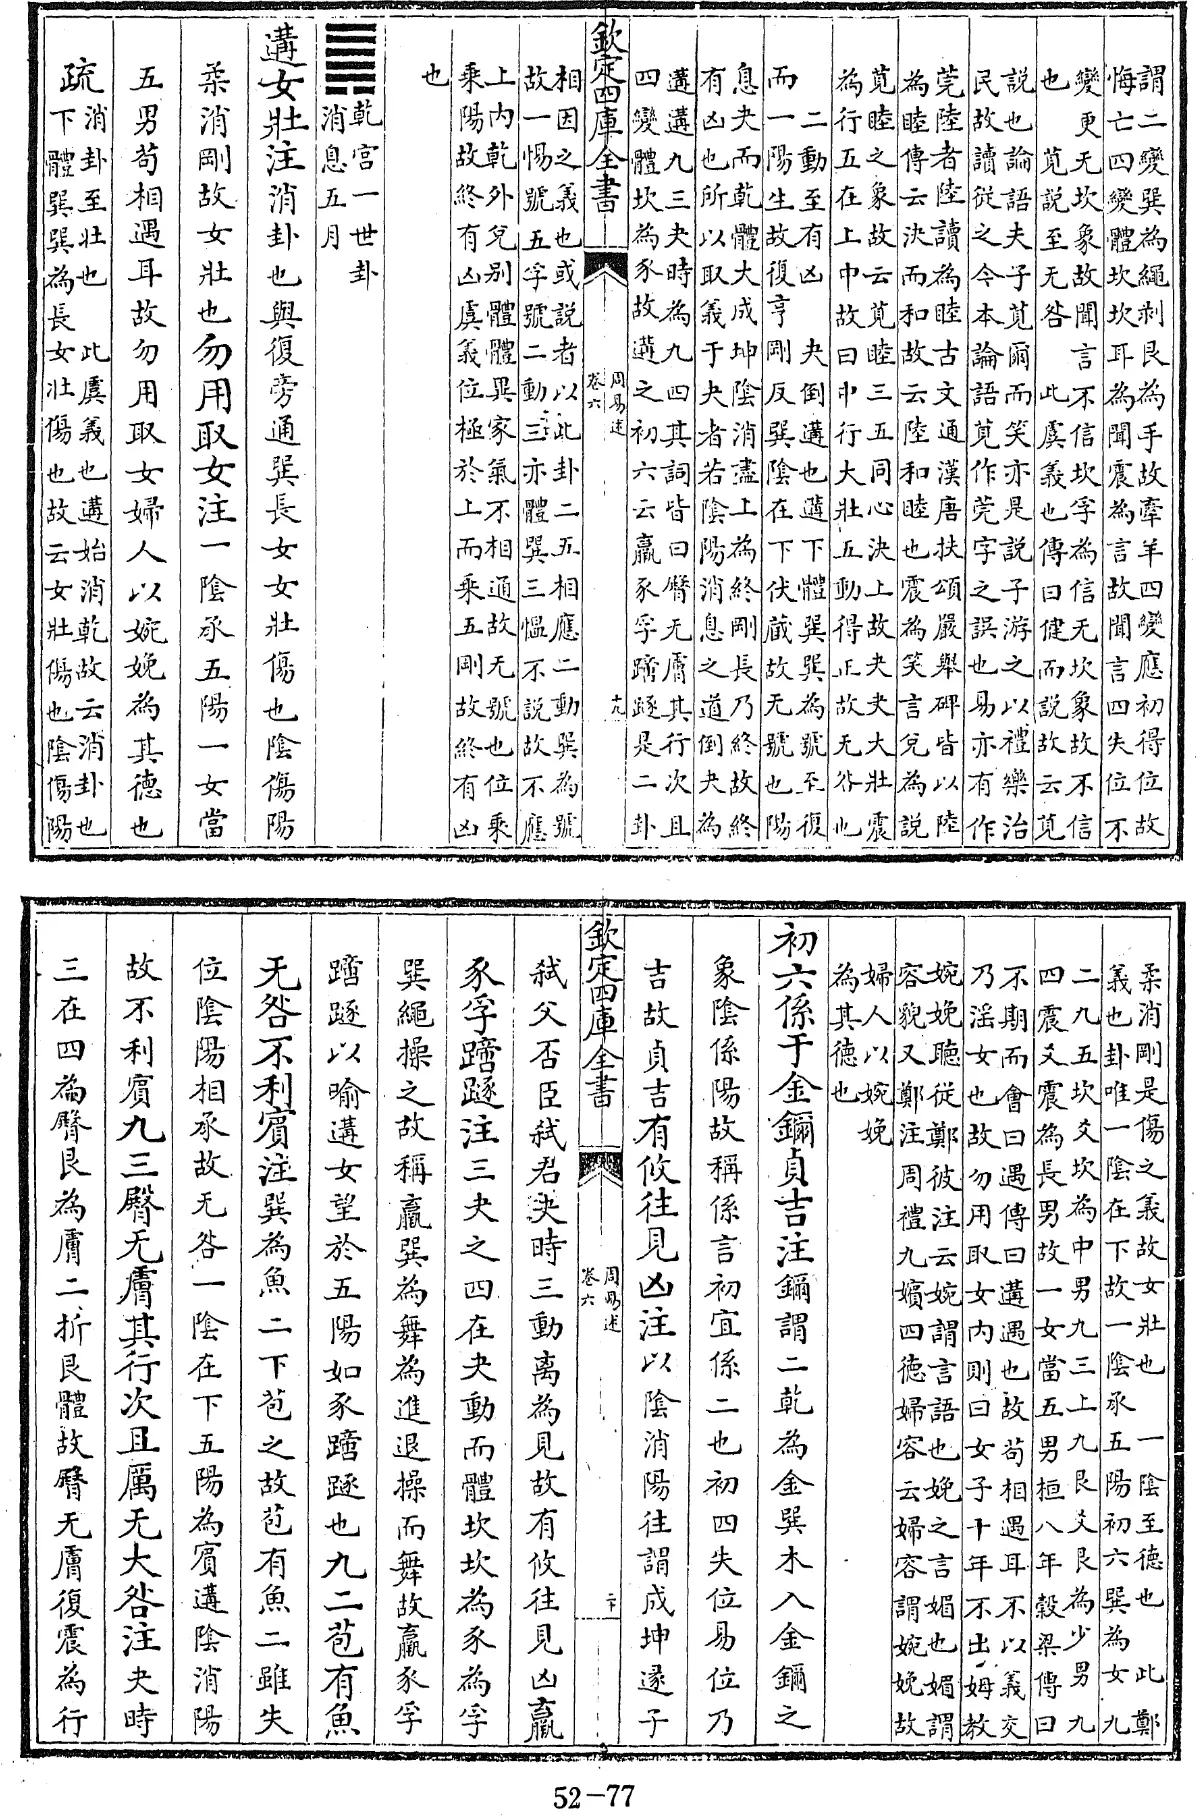 謂二變巽為繩剥艮為手故牽羊四變應初得位故
悔亡四變體坎坎耳為聞震為言故聞言四失位不
變更无坎象故聞言不信坎孚為信无坎象故不信
也　莧說至无咎　此虞義也傳曰健而說故云莧
說也論語夫子莧爾而笑亦是說子游之以禮樂治
民故讀從之今本論語莧作莞字之誤也易亦有作
莞陸者陸讀為睦古文通漢唐扶頌嚴舉碑皆以陸
為睦傳云決而和故云陸和睦也震為笑言兌為說
莧睦之象故云莧睦三五同心決上故夬夬大壯震
為行五在上中故曰中行大壯五動得正故无咎也
　二動至有凶　夬倒遘也遘下體巽巽為號至復
而一陽生故復亨剛反巽陰在下伏藏故无號也陽
息夬而乾體大成坤陰消盡上為終剛長乃終故終
有凶也所以取義于夬者若陰陽消息之道倒夬為
遘遘九三夬時為九四其詞皆曰臀无膚其行次且
四變體坎為豕故遘之初六云羸豕孚蹢䠱是二卦
欽定四庫全書
周易述
卷六
十九
相因之義也或說者以此卦二五相應二動巽為號
故一惕號五孚號二動三亦體巽三慍不說故不應
上內乾外兌别體體異家氣不相通故无號也位乘
乘陽故終有凶虞義位極於上而乘五剛故終有凶
也
乾宮一世卦
消息五月
遘女壯注消卦也與復旁通巽長女女壯傷也陰傷陽
柔消剛故女壯也勿用取女注一陰承五陽一女當
五男苟相遇耳故勿用取女婦人以婉娩為其德也
疏
消卦至壯也　此虞義也遘始消乾故云消卦也
下體巽巽為長女壯傷也故云女壯傷也陰傷陽
柔消剛是傷之義故女壯也　一陰至德也　此鄭
義也卦唯一陰在下故一陰承五陽初六巽為女九
二九五坎爻坎為中男九三上九艮爻艮為少男九
四震爻震為長男故一女當五男桓八年穀梁傳曰
不期而會曰遇傳曰遘遇也故苟相遇耳不以義交
乃淫女也故勿用取女內則曰女子十年不出姆教
婉娩聽從鄭彼注云婉謂言語也娩之言媚也媚謂
容貌又鄭注周禮九嬪四德婦容云婦容謂婉娩故
婦人以婉娩
為其德也
初六係于金鑈貞吉注鑈謂二乾為金巽木入金鑈之
象陰係陽故稱係言初宜係二也初四失位易位乃
吉故貞吉有攸往見凶注以陰消陽往謂成坤遂子
欽定四庫全書
周易述
卷六
二十
弑父否臣弑君夬時三動离為見故有攸往見凶羸
豕孚蹢䠱注三夬之四在夬動而體坎坎為豕為孚
巽繩操之故稱羸巽為舞為進退操而舞故羸豕孚
蹢䠱以喻遘女望於五陽如豕蹢䠱也九二苞有魚
无咎不利賓注巽為魚二下苞之故苞有魚二雖失
位陰陽相承故无咎一陰在下五陽為賓遘陰消陽
故不利賓九三臀无膚其行次且厲无大咎注夬時
三在四為臀艮為膚二折艮體故臀无膚復震為行
52-77